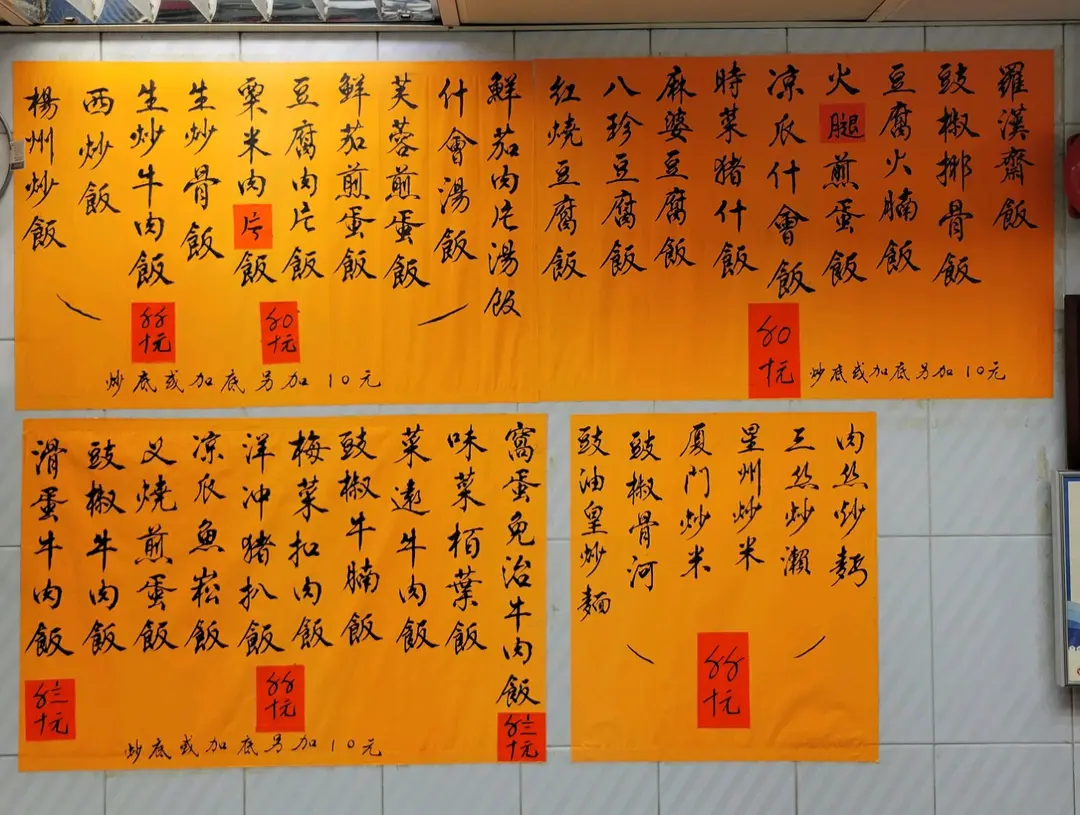 羅漢齋飯
豉椒排骨飯
豆腐火腩飯
火腿煎蛋飯
凉瓜什會飯
時菜猪什飯
麻婆豆腐飯
八珍豆腐飯
紅燒豆腐飯
〥〇
十元
炒底或加底另加10元
鮮茄肉片湯飯
什會湯飯
芙蓉煎蛋飯
鮮茄煎蛋飯
豆腐肉片飯
粟米肉片飯
生炒骨飯
生炒牛肉飯
西炒飯
楊州炒飯
〥〇
十元
〥〥
十元
炒底或加底另加10元
肉丝炒麫
三丝炒瀨
星州炒米
厦門炒米
豉椒骨河
豉油皇炒麵
〥〥
十元
窩蛋免治牛肉飯
〥三
十元
味菜栢葉飯
菜遠牛肉飯
豉椒牛腩飯
梅菜扣肉飯
洋冲猪扒飯
凉瓜魚崧飯
叉燒煎蛋飯
豉椒牛肉飯
滑蛋牛肉飯
〥〥
十元
〥三
十元
炒底或加底另加10元